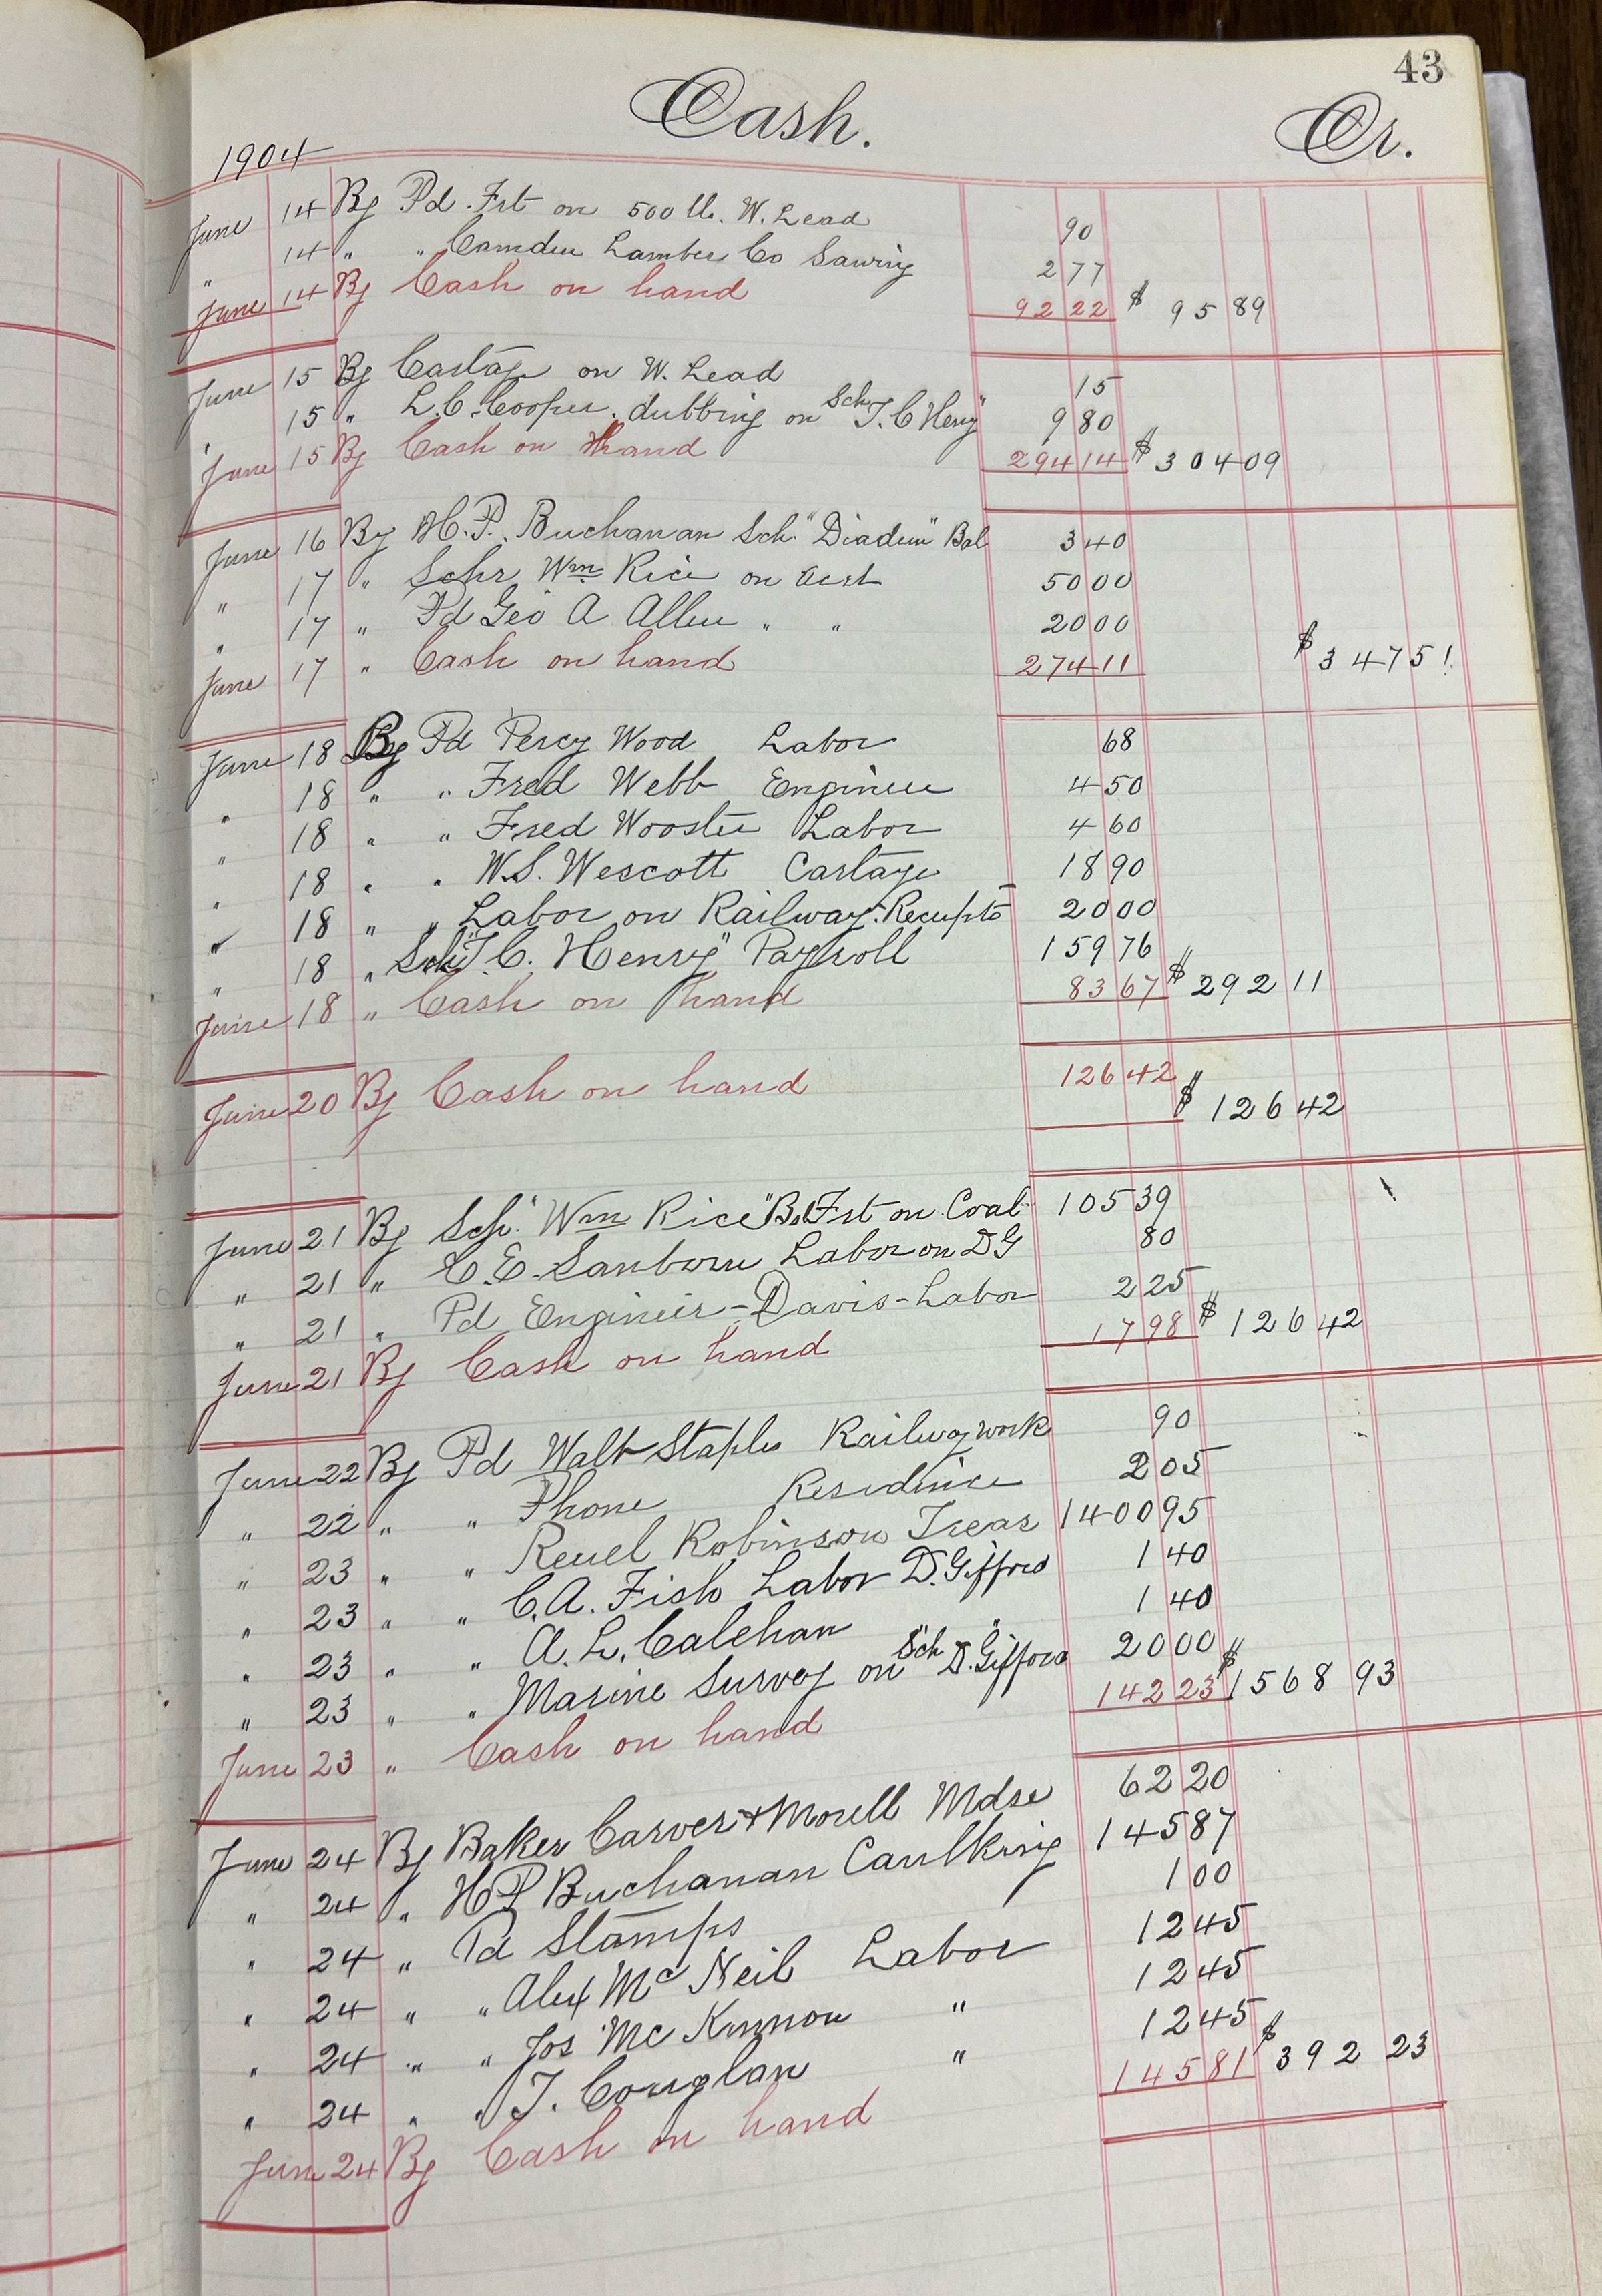 43
Cash. Cr.
1904
June 14 By Pd. Frt on 500 lb. W. Lead 90
" 14 " " Camden Lumber Co Sawing 2 77
June 14 By Cash on hand 92 22 $ 95 89
June 15 By Cartage on W. Lead 15
" 15 " L.C. Cooper. dubbing on Sch "T. C Henry" 9 80
June 15 By Cash on Hand 294 14 $ 304 09
June 16 By H. P. Buchanan Sch. "Diadem" Bal 3 40
" 17 " Schr Wm Rice on acct 50 00
" 17 " Pd Geo A Allen " " 20 00
June 17 " Cash on hand 274 11 $ 347 51
June 18 By Pd Percy Wood Labor 68
" 18 " " Fred Webb Engineer 4 50
" 18 " " Fred Wooster Labor 4 60
" 18 " " W. S. Wescott Cartage 18 90
" 18 " " Labor on Railway. Receipts 20 00
" 18 " Sch "T. C. Henry" Payroll 159 76
June 18 " Cash on hand 83 67 $ 292 11
June 20 By Cash on hand 126 42 $ 126 42
June 21 By Sch. "Wm Rice" Bal Frt on Coal 105 39
" 21 " C. E. Sanborn Labor on D G 80
" 21 " Pd Engineer - Davis - Labor 2 25
June 21 By Cash on hand 17 98 $ 126 42
June 22 By Pd Walt Staples Railway work 90
" 22 " " Phone Residence 2 05
" 23 " " Reuel Robinson Treas 1400 95
" 23 " " C. A. Fish Labor D. Gifford 1 40
" 23 " " A. L. Calehan 1 40
" 23 " " Marine Survey on "Sch D. Gifford" 20 00
June 23 " Cash on hand 142 23 $ 1568 93
June 24 By Baker Carver & Morell Mdse 62 20
" 24 " H P Buchanan Caulking 145 87
" 24 " Pd Stamps 1 00
" 24 " " Alex McNeil Labor 12 45
" 24 " " Jos McKinnon " 12 45
" 24 " " T. Couglan " 12 45
June 24 By Cash on hand 145 81 $ 392 23